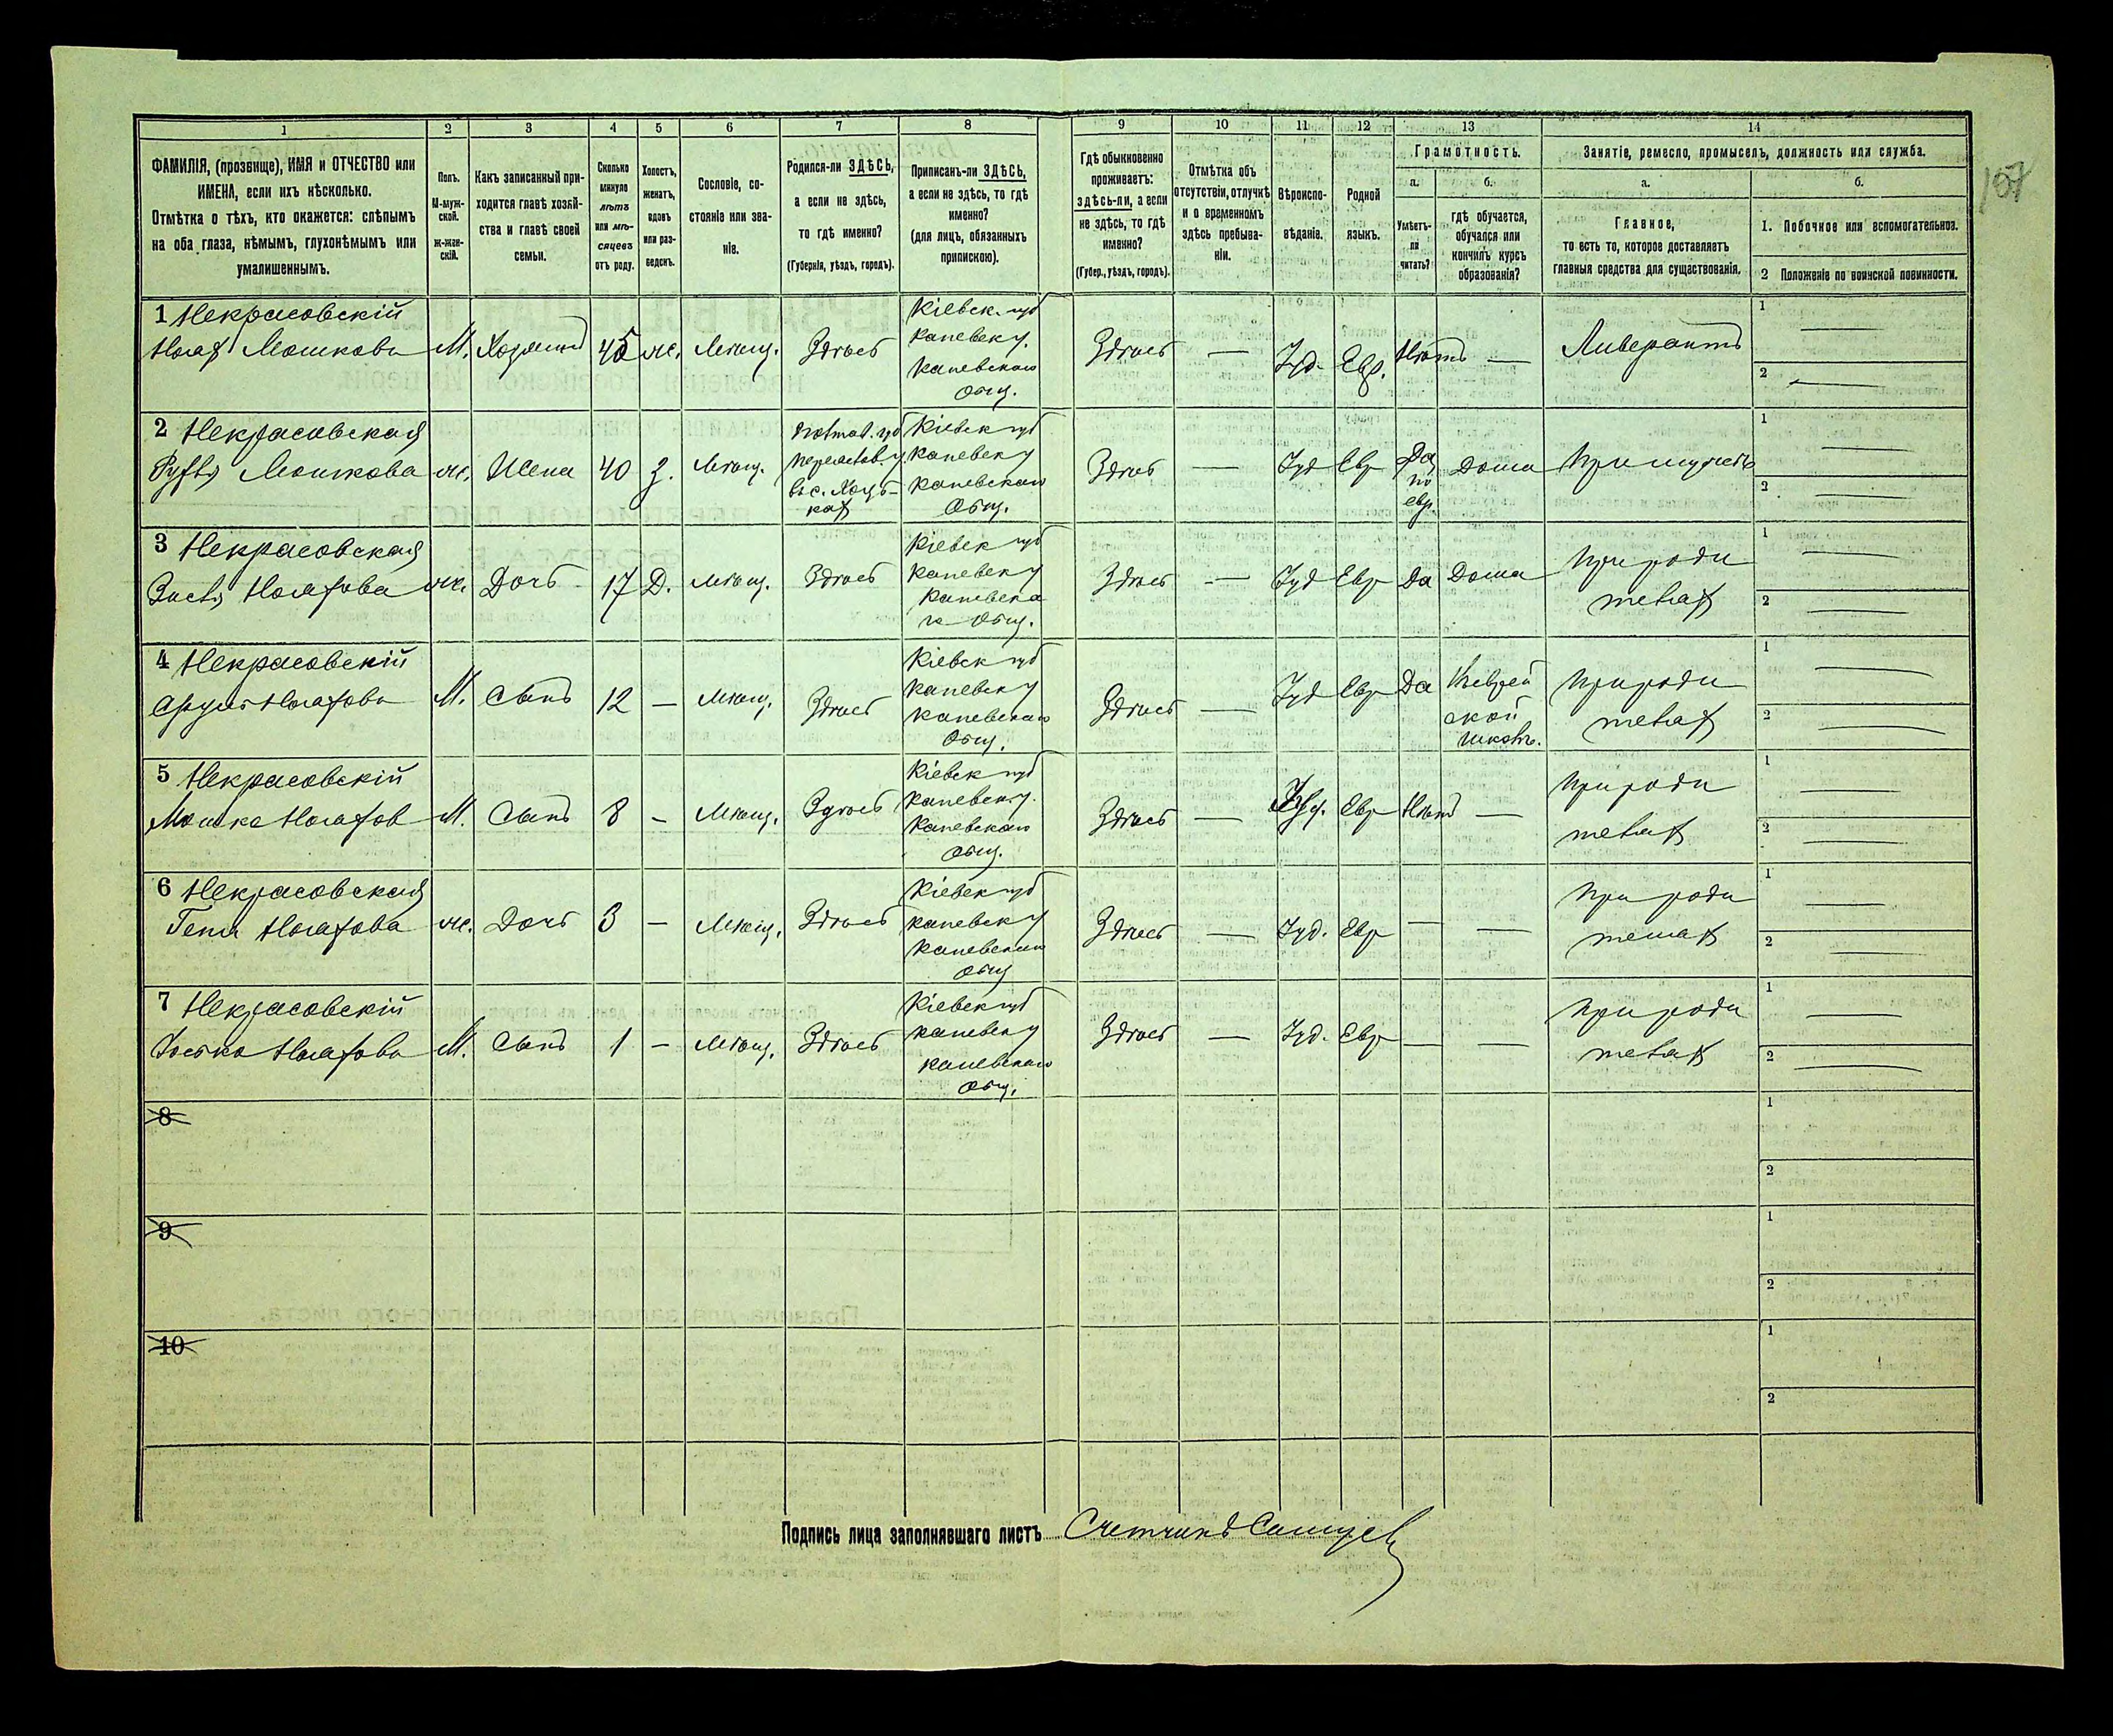 107
1
2
3
4
5
6
7
8
9
10
11
12
13
14
ФАМИЛІЯ, (прозвище), ИМЯ и ОТЧЕСТВО или
ИМЕНА, если ихъ нѣсколько.
Отмѣтка о тѣхъ, кто окажется: слѣпымъ
на оба глаза, нѣмымъ, глухонѣмымъ или
умалишеннымъ.
Полъ.
М-муж-
ской.
ж-жен-
скій.
Какъ записанный при-
ходится главѣ хозяй-
ства и главѣ своей
семьи.
Сколько
минуло
лѣтъ
или мѣ-
сяцевъ
отъ роду.
Холостъ,
женатъ,
вдовъ
или раз-
веденъ.
Сословіе, со-
стояніе или зва-
ніе.
Родился-ли ЗДѢСЬ,
а если не здѣсь,
то гдѣ именно?
(Губернія, уѣздъ, городъ).
Приписанъ-ли ЗДѢСЬ,
а если не здѣсь, то гдѣ
именно?
(для лицъ, обязанныхъ
припискою).
Гдѣ обыкновенно
проживаетъ:
здѣсь-ли, а если
не здѣсь, то гдѣ
именно?
(Губер., уѣздъ, городъ).
Отмѣтка объ
отсутствіи, отлучкѣ
и о временномъ
здѣсь пребыва-
ніи.
Вѣроиспо-
вѣданіе.
Родной
языкъ.
Грамотность.
а.
Умѣетъ-
ли
читать?
б.
гдѣ обучается,
обучался или
кончилъ курсъ
образованія?
Занятіе, ремесло, промыселъ, должность или служба.
а.
Главное,
то есть то, которое доставляетъ
главныя средства для существованія.
б.
1. Побочное или вспомогательное.
2 Положеніе по воинской повинности.
1 Некрасовскій
Мошковъ
М.
Хозяинъ
45
ж.
Мѣщ.
Здѣсь
Кіевск. губ
Каневск у.
Каневскаго
Общ.
Здѣсь
—
Іуд.
Евр.
Нѣтъ
—
Ливерантъ
1 —
2 —
2 Некрасовская
Мошкова
ж.
Жена
40
З.
Мѣщ.
Полтав. губ
Переяслов. у.
Кіевск губ
Каневск у
Каневскаго
Общ.
Здѣсь
—
Іуд
Евр
Да
по
евр
Дома
При мужѣ
1 —
2 —
3 Некрасовская
ж.
Дочь
17
Д.
Мѣщ.
Здѣсь
Кіевск губ
Каневск у
Каневска
го Общ.
Здѣсь
—
Іуд
Евр
Да
Дома
При роди
теляхъ
1 —
2 —
4 Некрасовскій
М.
Сынъ
12
—
Мѣщ.
Здѣсь
Кіевск губ
Каневск у
Каневскаго
Общ.
Здѣсь
—
Іуд
Евр
Да
Въ еврей
ской
школѣ.
При роди
теляхъ
1 —
2 —
5 Некрасовскій
Мошко
М.
Сынъ
8
—
Мѣщ.
Здѣсь
Кіевск губ
Каневск у.
Каневскаго
Общ.
Здѣсь
—
Іуд.
Евр
Нѣтъ
—
При роди
теляхъ
1 —
2 —
6 Некрасовская
ж.
Дочь
3
—
Мѣщ.
Здѣсь
Кіевск губ
Каневск у
Каневскаго
Общ
Здѣсь
—
Іуд.
Евр
—
—
При роди
теляхъ
1 —
2 —
7 Некрасовскій
М.
Сынъ
1
—
Мѣщ.
Здѣсь
Кіевск губ
Каневск у
Каневскаго
Общ.
Здѣсь
—
Іуд.
Евр
—
—
При роди
теляхъ
1 —
2 —
8
1
2
9
1
2
10
1
2
Подпись лица заполнявшаго листъ Счетчикъ